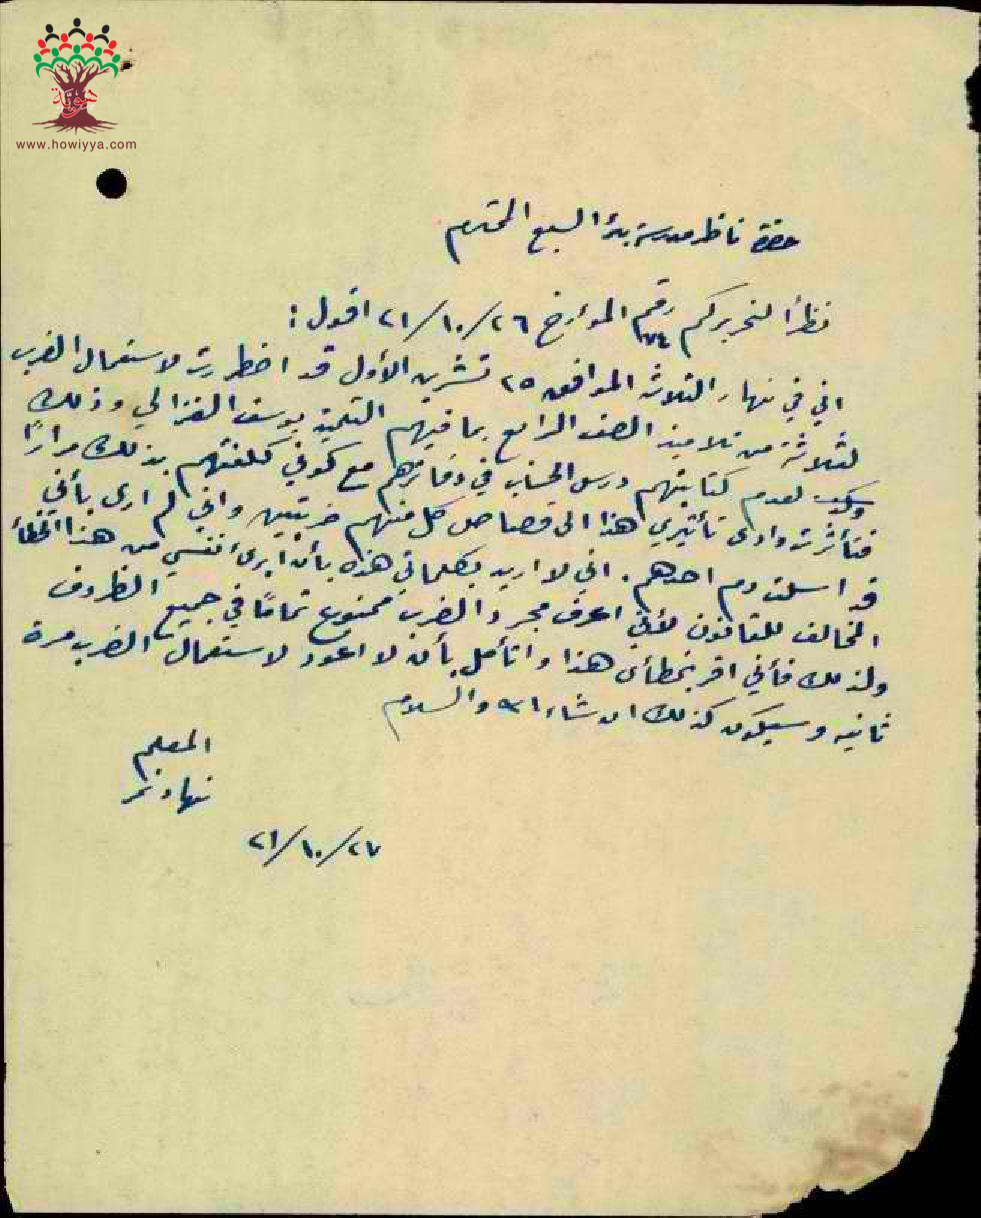 هوية
www.howiyya.com
حضرة ناظر مدرسة بئر السبع المحترم
نظراً لتحريركم رقم ٧٤ المؤرخ ٢٦/١٠/٢١ اقول:
اني في نهار الثلاثاء الموافق ٢٥ تشرين الأول قد اضطررت لاستعمال الضرب
لثلاثة من تلاميذ الصف الرابع بما فيهم التلميذ يوسف الغزالي وذلك
لعدم كتابتهم درس الحساب في دفاترهم مع كوني كلفتهم بذلك مراراً
فتأثرت وادى تأثيري هذا الى قصاص كل منهم ضربتين واني لم ارى بأني
قد اسلت دم احدهم. اني لا اريد بكلماتي هذه بأن ابرئ نفسي من هذا الخطأ
المخالف للقانون لأني اعرف مجرد الضرب ممنوع تماماً في جميع الظروف
ولذلك فأني اقر بخطأي هذا واتأمل بأن لا اعود لاستعمال الضرب مرة
ثانيه وسيكون كذلك ان شاء الله والسلام
المعلم
نهاد
٢٧/١٠/٢١